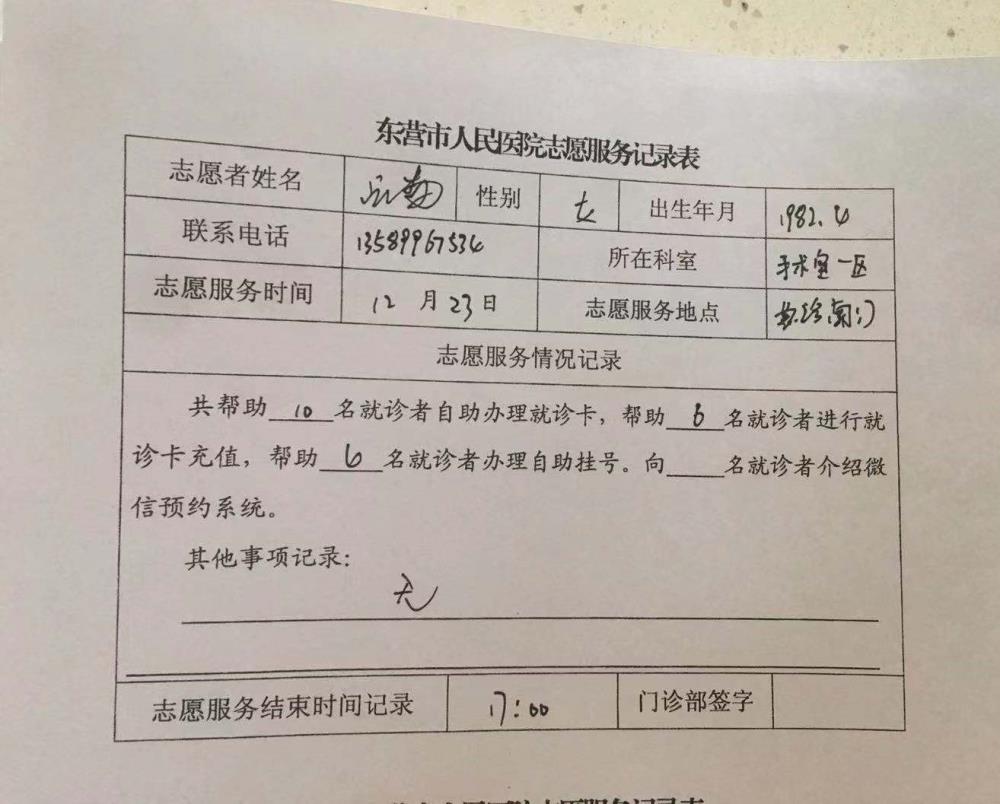 东营市人民医院志愿服务记录表
志愿者姓名 性别 女 出生年月 1982.4
联系电话 13589967534 所在科室 手术室一区
志愿服务时间 12月23日 志愿服务地点 南门
志愿服务情况记录
共帮助10名就诊者自助办理就诊卡，帮助6名就诊者进行就
诊卡充值，帮助6名就诊者办理自助挂号。向____名就诊者介绍微
信预约系统。
其他事项记录：
无
志愿服务结束时间记录 17:00 门诊部签字